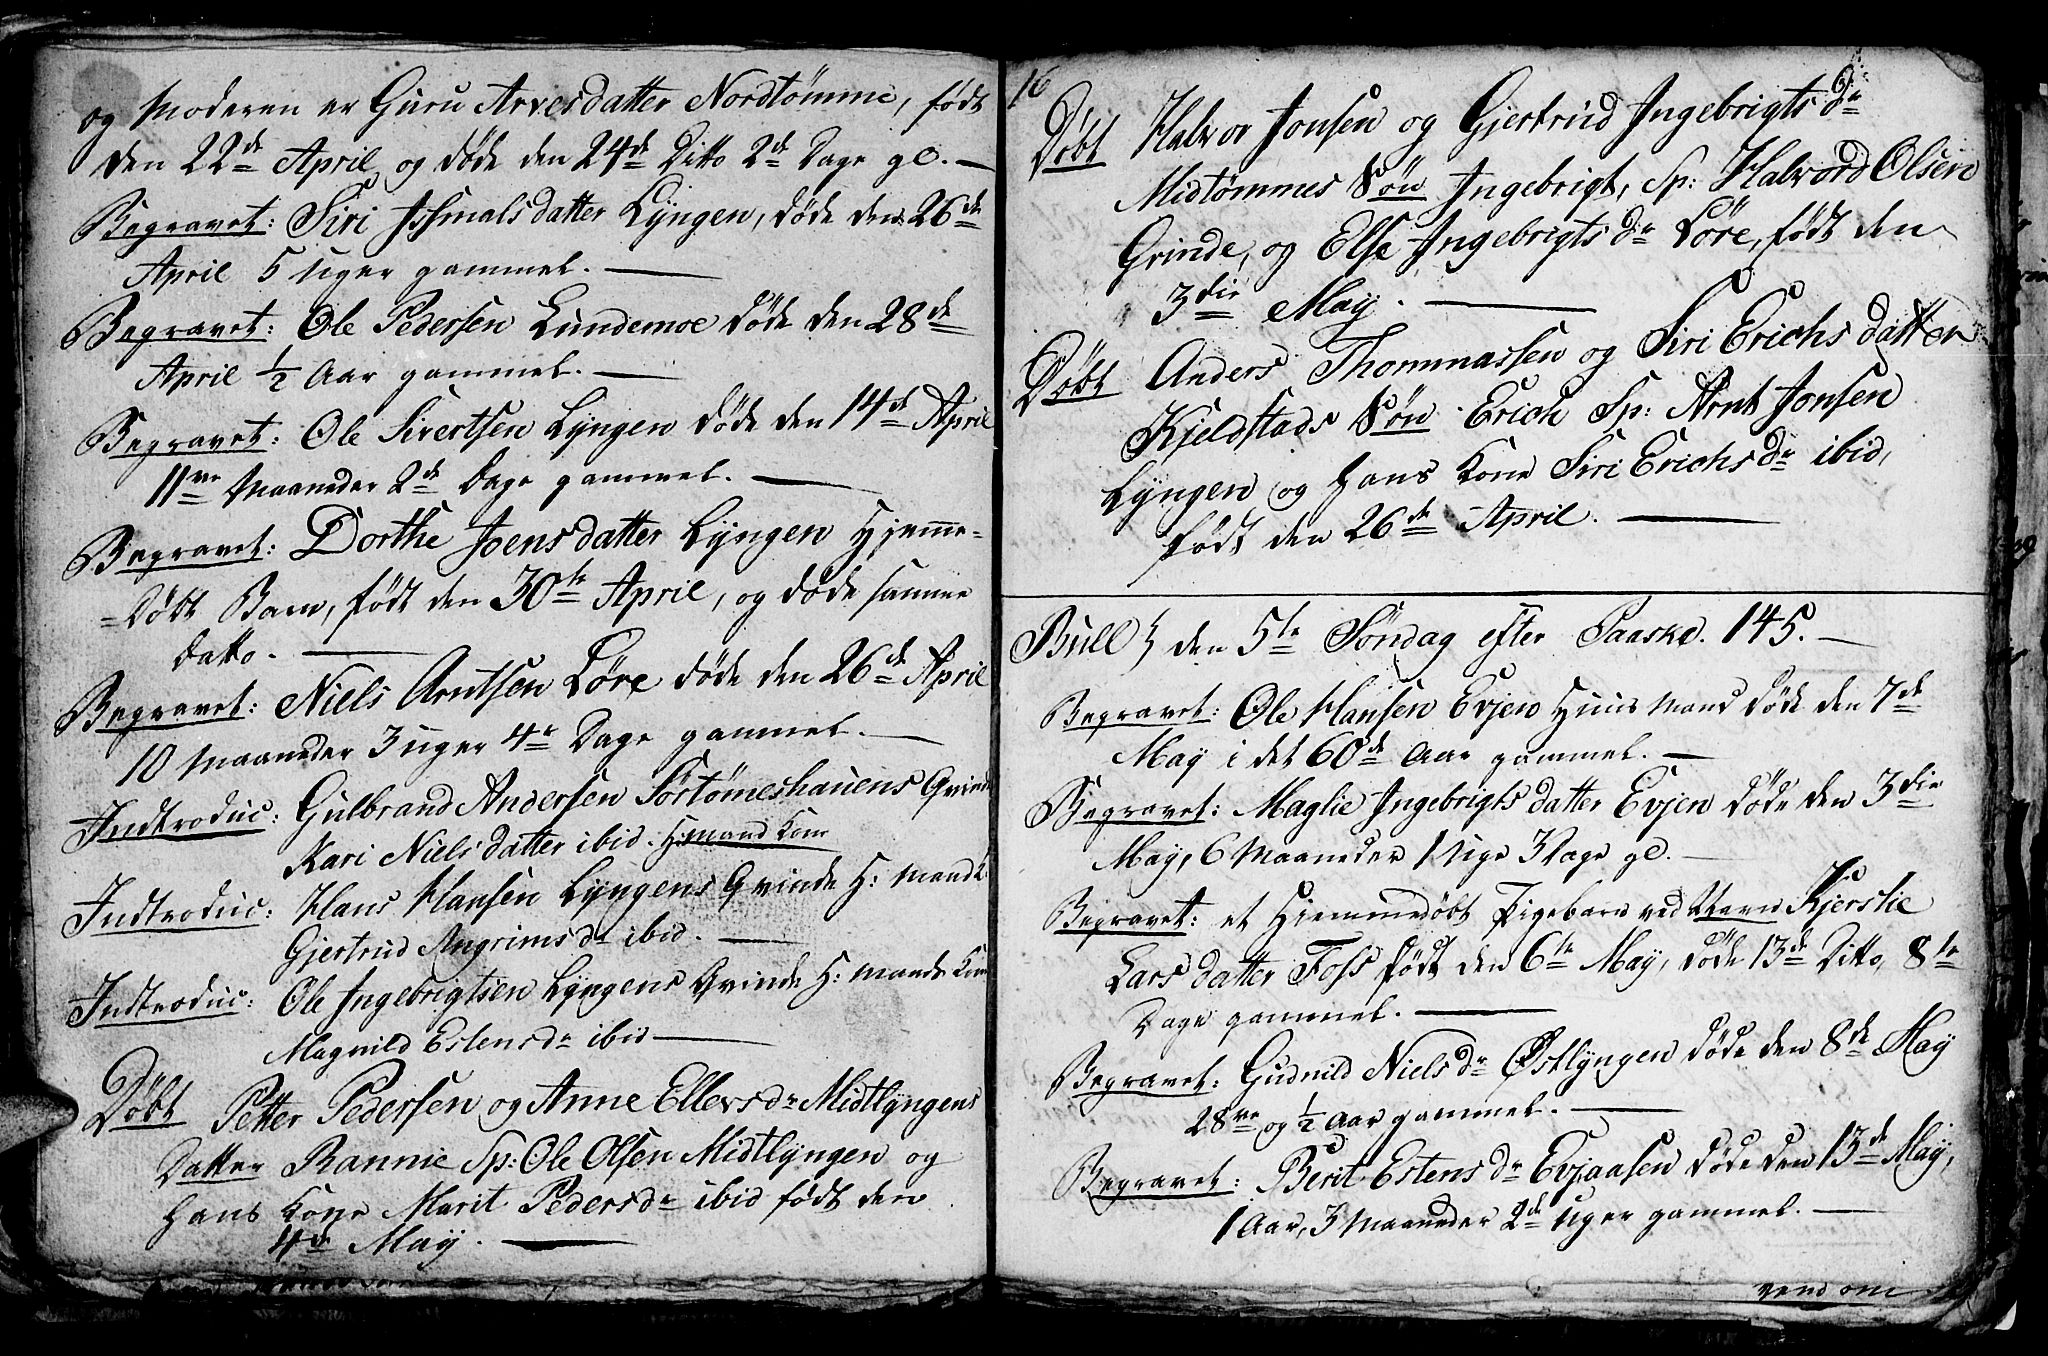 og Moderen er Guru Arvesdatter Nordtømme, født
den 22de April og døde den 24de Ditto 2de Dage gl. —
Begravet: Siri Ismalsdatter Lyngen, døde den 26de
April 5 uger gammel. —
Begravet: Ole Pedersen Lundemoe døde den 28de
April ½ Aar gammel. —
Begravet: Ole Sivertsen Lyngen døde den 14de April
11ve Maaneder 2de Dage gammel. —
Begravet: Dorthe Joensdatter Lyngen Hjemme-
=døbt Barn, født den 30te April, og døde samme
Datto. —
Begravet: Niels Arntsen Løre døde den 26de April
10 Maaneder 3 uger 4re Dage gammel. —
Indtroduc: Gulbrand Andersen Sørtømeshauens Qvinde
Kari Nielsdatter ibid. H:mand Kone
Indtroduc: Hans Hansen Lyngens Qvinde H: mands
Gjertrud Angrimsdr ibid. —
Indtroduc: Ole Ingebrigtsen Lyngens Qvinde H: mands Kone
Magnild Estensdr ibid —
Døbt Petter Pedersen og Anne Ellevsdr Midtlyngens
Datter Rannie Sp: Ole Olsen Midtlyngen og
hans Kone Marit Pedersdr ibid født den
4de May. —
16
Døbt Halvor Jonsen og Gjertrud Ingebrigtsdr
Midtømmes Søn Ingebrigt, Sp: Halvord Olsen
Grinde, og Else Ingebrigtsdr Løre, født den
3die May. —
Døbt Anders Thommassen og Siri Erichsdatter
Kjeldstads Søn Erich Sp: Arnt Jonsen
Lyngen og hans Kone Siri Erichsdr ibid,
født den 26de April. —
Buel den 5te Søndag efter Paaske. 145. —
Begravet: Ole Hansen Evjen Huus Mand døde den 7de
May i det 60de Aar gammel. —
Begravet: Maglie Ingebrigtsdatter Evjen døde den 3die
May, 6 Maaneder 1 Uge 3 Dage gl. —
Begravet: et Hiemmedøbt Pigebarn ved Navn Kjerstie
Larsdatter Foss født den 6te May, døde 13de Ditto, 8te
Dage gammel. —
Begravet: Gudnild Nielsdr Østlyngen døde den 8de May
28ve og ½ Aar gammel. —
Begravet: Berit Estensdr Evjaasen døde den 13de May,
1 Aar, 3 Maaneder 2de Uger gammel. —
vend om